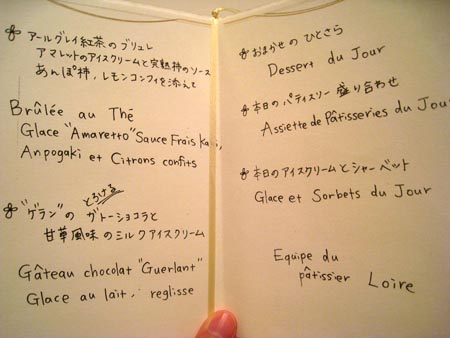 アールグレイ紅茶のブリュレ
アマレットのアイスクリームと完熟柿のソース
あんぽ柿、レモンコンフィを添えて
Brûlée au Thé
Glace "Amaretto" Sauce Frais Kaki,
Anpogaki et Citrons confits
とろける
"ゲラン"の ガトーショコラと
甘草風味のミルクアイスクリーム
Gâteau chocolat "Guerlant"
Glace au lait, reglisse
おまかせの ひとさら
Dessert du Jour
本日の パティスリー 盛り合わせ
Assiette de Pâtisseries du Jour
本日のアイスクリームとシャーベット
Glace et Sorbets du Jour
Equipe du
pâtissier Loire